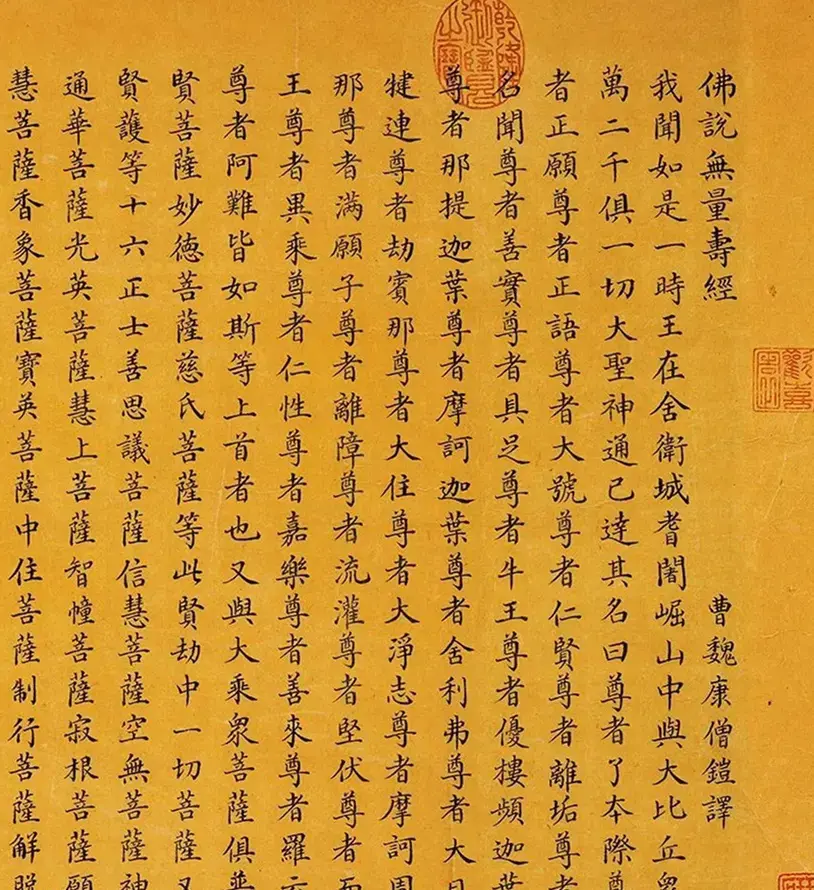 佛說無量壽經 曹魏康僧鎧譯
我聞如是一時王在舍衛城耆闍崛山中與大比丘衆
萬二千俱一切大聖神通已達其名曰尊者了本際尊
者正願尊者正語尊者大號尊者仁賢尊者離垢尊者
名聞尊者善實尊者具足尊者牛王尊者優樓頻迦葉
尊者那提迦葉尊者摩訶迦葉尊者舍利弗尊者大目
犍連尊者劫賓那尊者大住尊者大淨志尊者摩訶周
那尊者满願子尊者離障尊者流灌尊者堅伏尊者
王尊者異乘尊者仁性尊者嘉樂尊者善來尊者羅云
尊者阿難皆如斯等上首者也又與大乘衆菩薩俱普
賢菩薩妙德菩薩慈氏菩薩等此賢劫中一切菩薩又
賢護等十六正士善思議菩薩信慧菩薩空無菩薩神
通華菩薩光英菩薩慧上菩薩智幢菩薩寂根菩薩願
慧菩薩香象菩薩寶英菩薩中住菩薩制行菩薩解脫